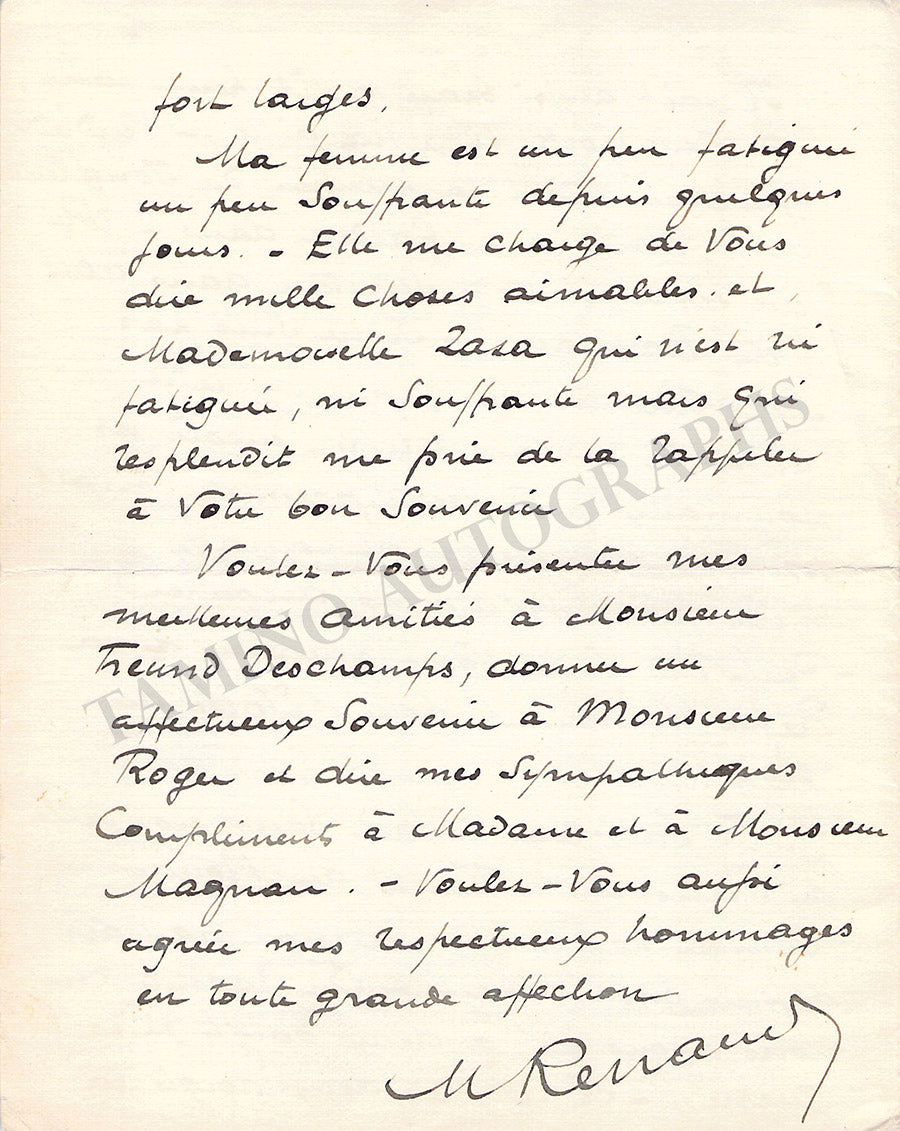 fort larges.
Ma femme est un peu fatiguée
un peu Souffrante depuis quelques
jours. - Elle me charge de Vous
dire mille Choses aimables. et
Mademoiselle Zaza qui n'est ni
fatiguée, ni Souffrante mais qui
resplendit me prie de la rappeler
à Votre bon Souvenir
Voulez-Vous présenter mes
meilleures amitiés à Monsieur
Freund Deschamps, donner un
affectueux Souvenir à Monsieur
Roger et dire mes Sympathiques
Compliments à Madame et à Monsieur
Magnan. - Voulez-Vous aussi
agréer mes respectueux hommages
en toute grande affection
M Renaud
TAMINO AUTOGRAPHS